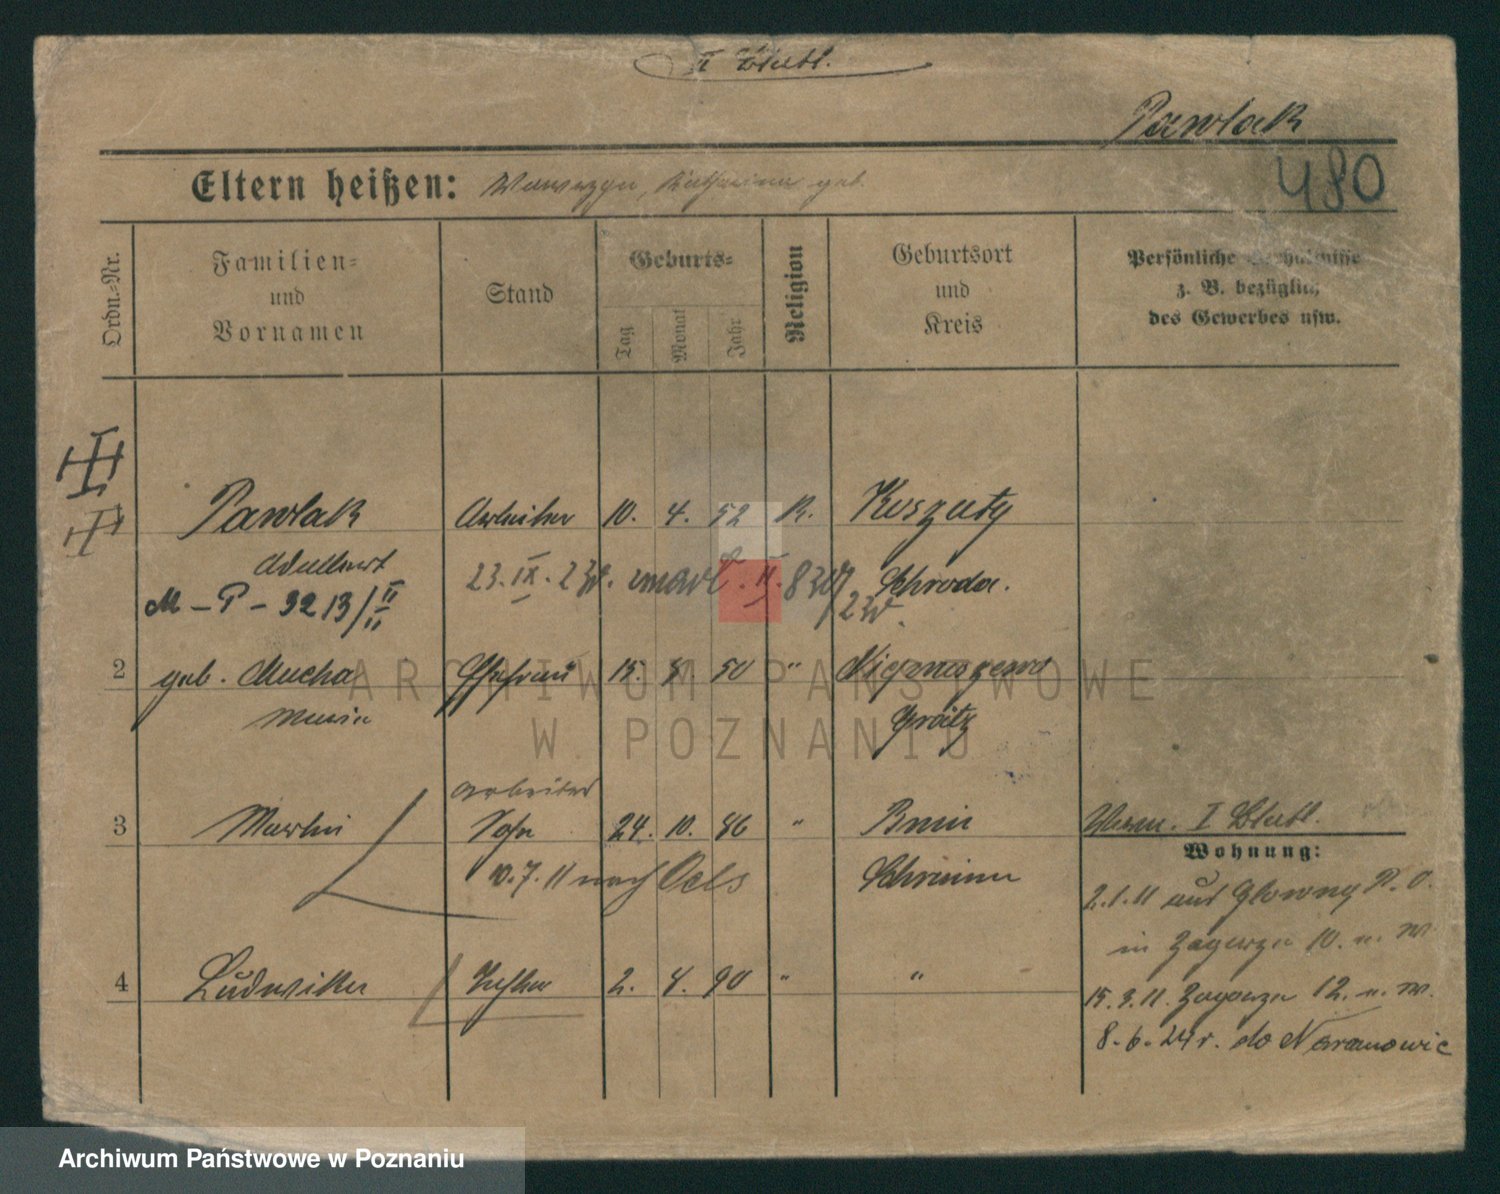 II Blatt.
Pawlak
480
Eltern heißen: Wawrzyn, Katharina geb.
Ordn.-Nr. Familien- und Vornamen Stand Geburts- Tag Monat Jahr Religion Geburtsort und Kreis Persönliche Verhältnisse z. B. bezüglich des Gewerbes usw.
1 Pawlak Arbeiter 10. 4. 52 R. Koszuty
Adalbert 23.IX.23r. zmarł. Schroda.
M – P – 3213/II
2 geb. Mucha Ehefrau 15. 8 50 "
Maria Grätz
arbeiter
3 Martin Sohn 24. 10. 86 " Bnin Verm. I Blatt.
Wohnung:
10.7.11 nach Oels Schrimm
2.1.11 aus Glowny P. O.
in Zagorze 10. u. W.
4 Ludwika Tochter 2. 8. 90 " "
15.3.11. Zagorze 12. u. W.
8.6.24 r. do Naramowic
ARCHIWUM PAŃSTWOWE
W POZNANIU
Archiwum Państwowe w Poznaniu